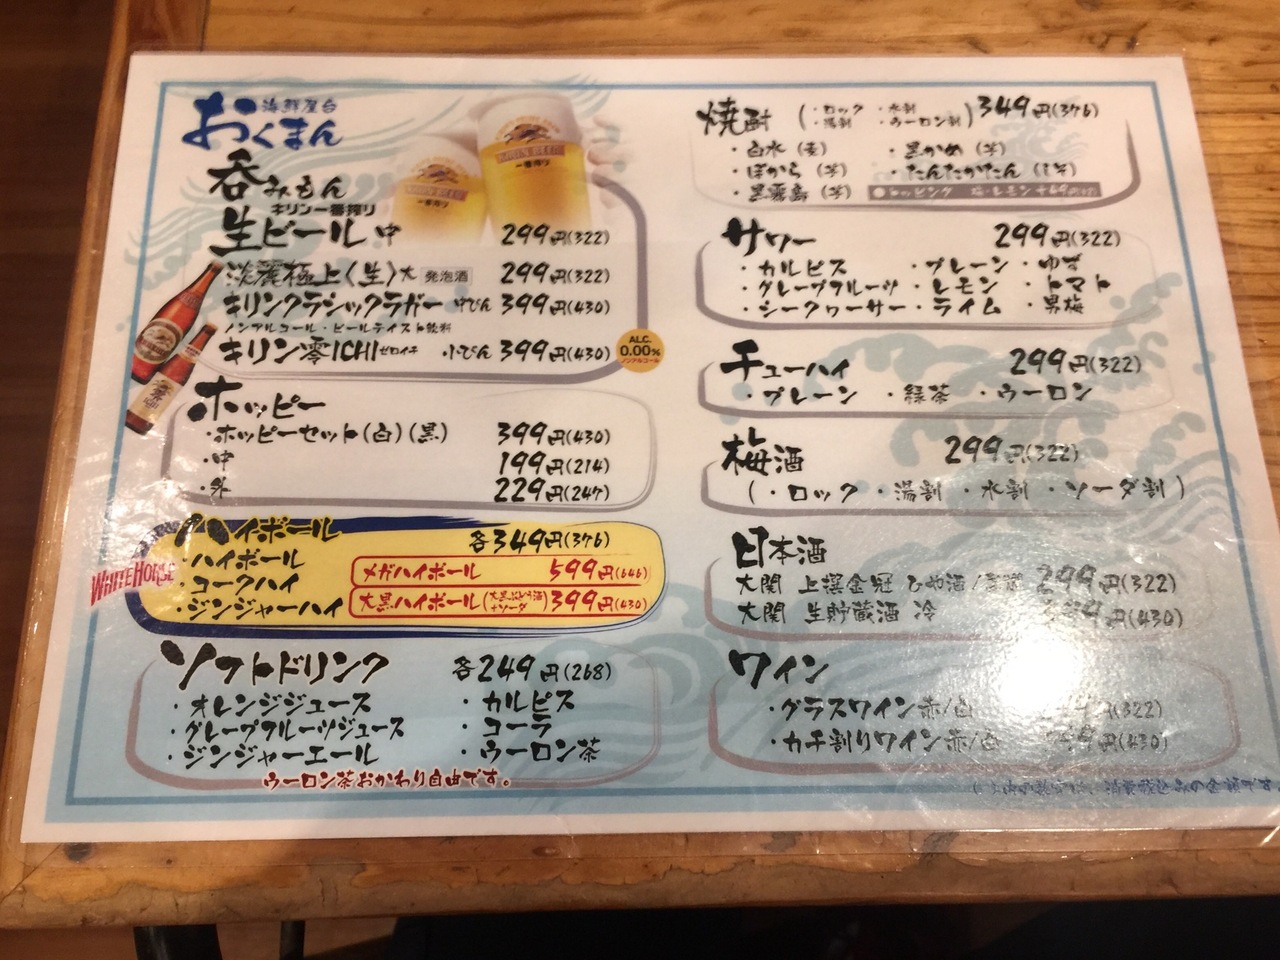 海鮮屋台
おくまん
呑みもん
キリン一番搾り
生ビール 中 299円(322)
淡麗極上〈生〉大 発泡酒 299円(322)
キリンクラシックラガー 中びん 399円(430)
ノンアルコール・ビールテイスト飲料
キリン零ICHI ゼロイチ ・小びん 399円(430)
ALC.
0.00%
ノンアルコール
ホッピー
・ホッピーセット(白)(黒) 399円(430)
・中 199円(214)
・外 229円(247)
ハイボール 各349円(376)
WHITE HORSE
・ハイボール
・コークハイ
・ジンジャーハイ
メガハイボール 599円(646)
大黒ハイボール 399円(430)
+ソーダ
ソフトドリンク 各249円(268)
・オレンジジュース ・カルピス
・グレープフルーツジュース ・コーラ
・ジンジャーエール ・ウーロン茶
ウーロン茶おかわり自由です。
焼酎 (・ロック ・水割 ・湯割 ・ウーロン割) 349円(376)
・白水(麦) ・黒かめ(芋)
・ほから(芋) ・たんたかたん(しそ)
・黒霧島(芋) ●トッピング 梅・レモン +49円
サワー 299円(322)
・カルピス ・プレーン ・ゆず
・グレープフルーツ ・レモン ・トマト
・シークヮーサー ・ライム ・男梅
チューハイ 299円(322)
・プレーン ・緑茶 ・ウーロン
梅酒 299円(322)
(・ロック ・湯割 ・水割 ・ソーダ割)
日本酒
大関 上撰金冠 ひや酒/ 299円(322)
大関 生貯蔵酒 冷 (430)
ワイン
・グラスワイン赤/白 (322)
・カチ割りワイン赤/白 (430)